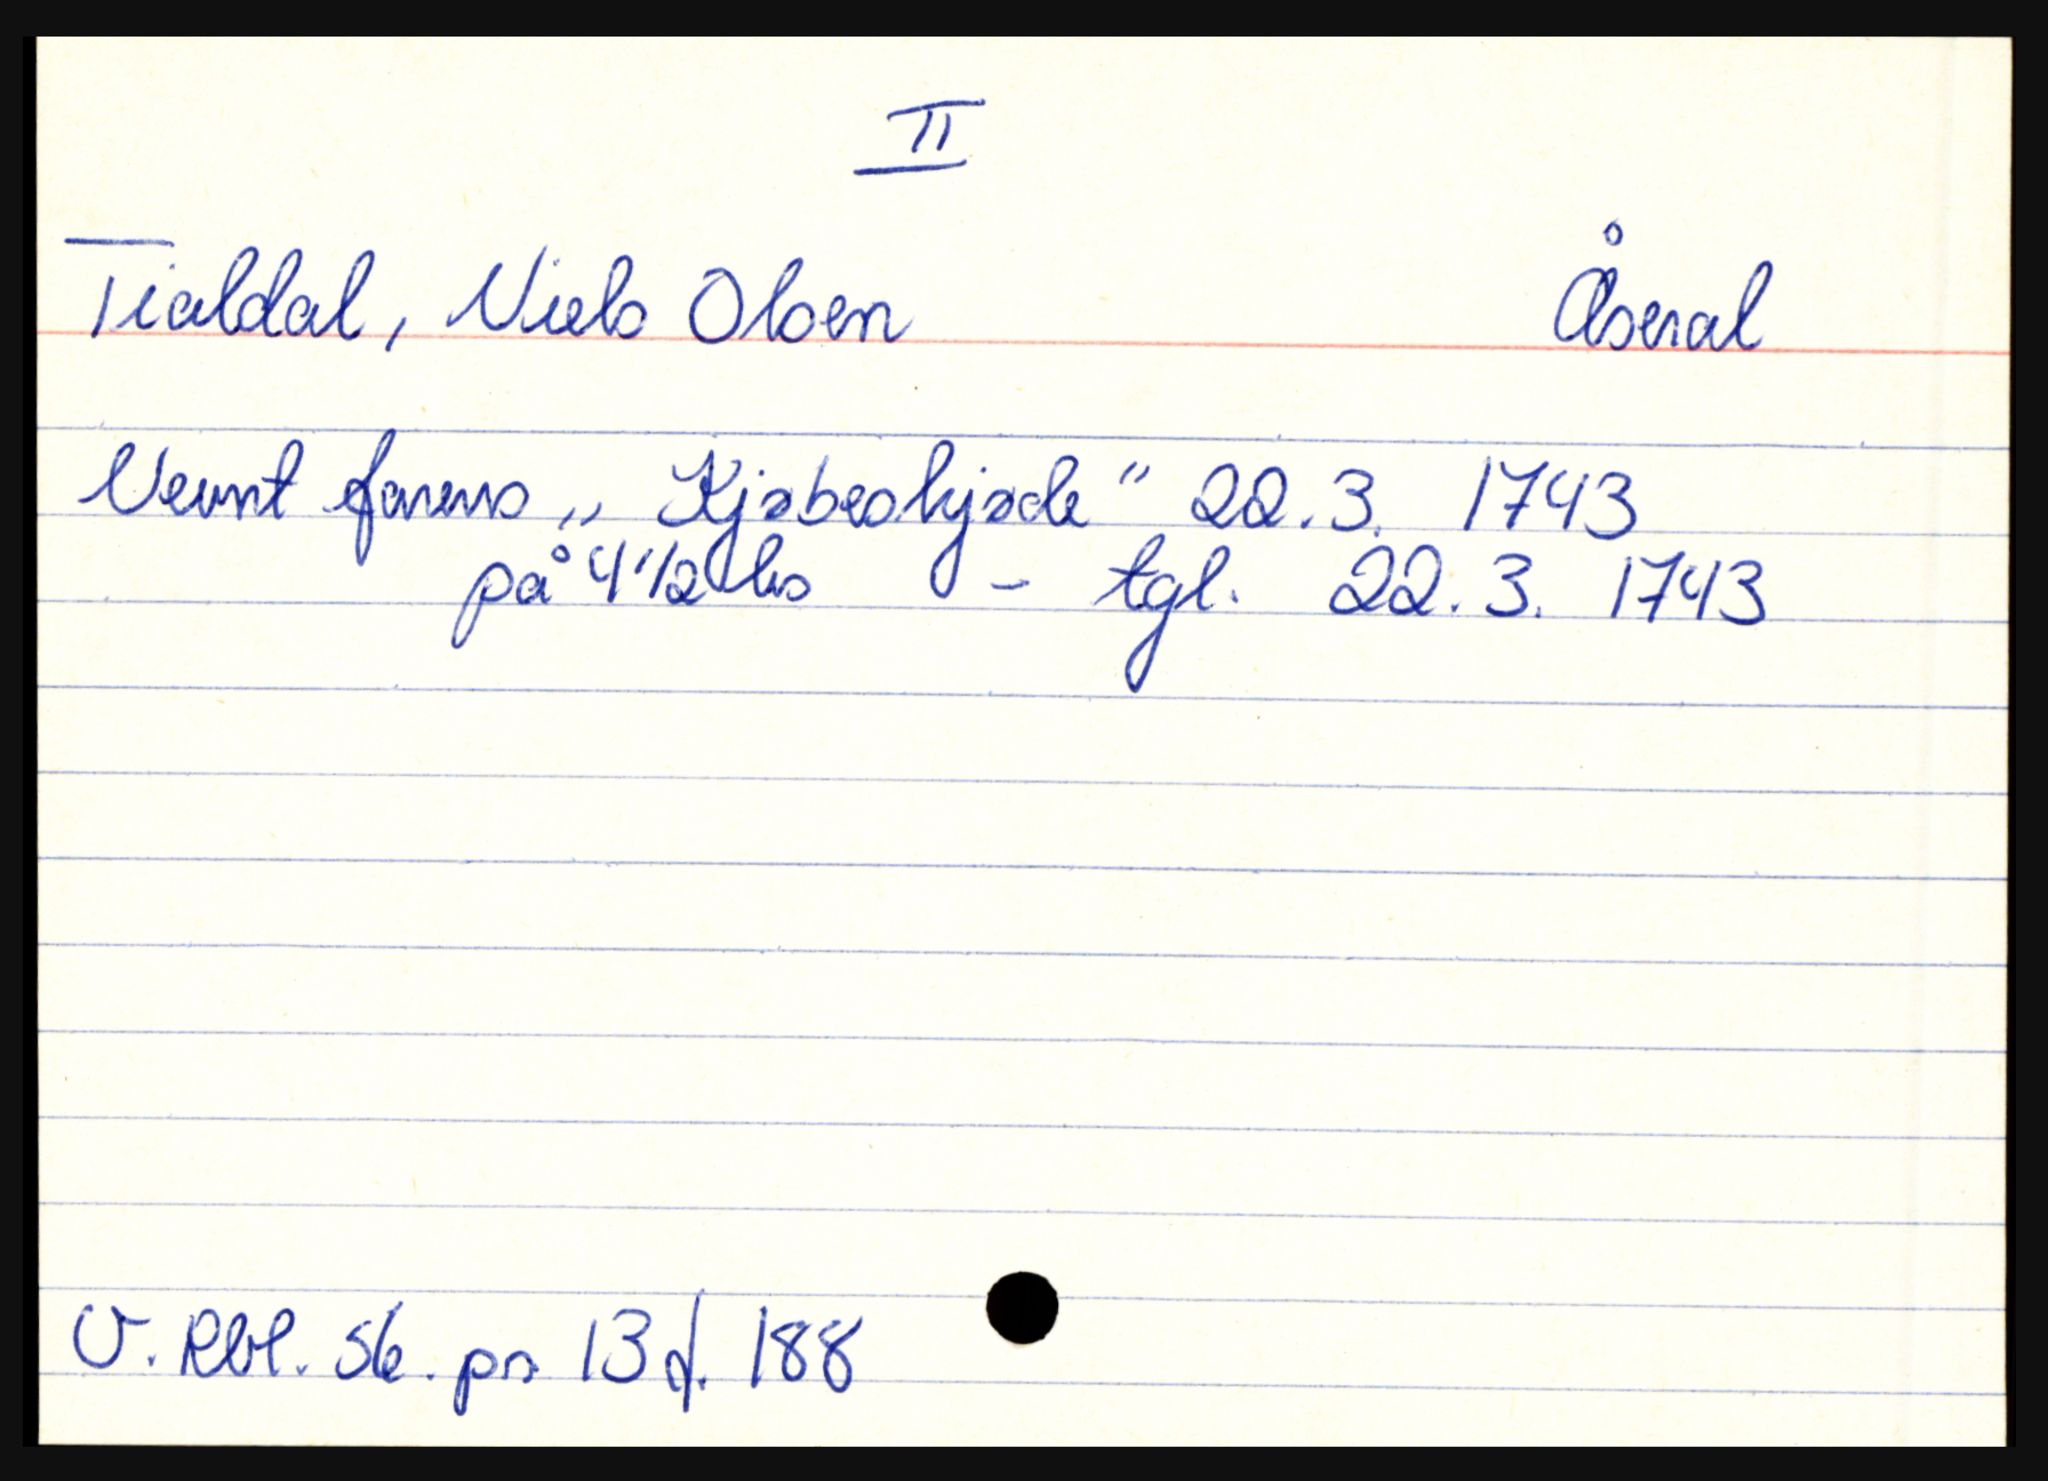 II
Tialdal, Niels Olsen Åseral
Nevnt farens „ Kjøbeskjøde " 22. 3. 1743
på 4 1/2 hs - tgl. 22. 3. 1743
V. Rbl. 56. pr 13 f. 188